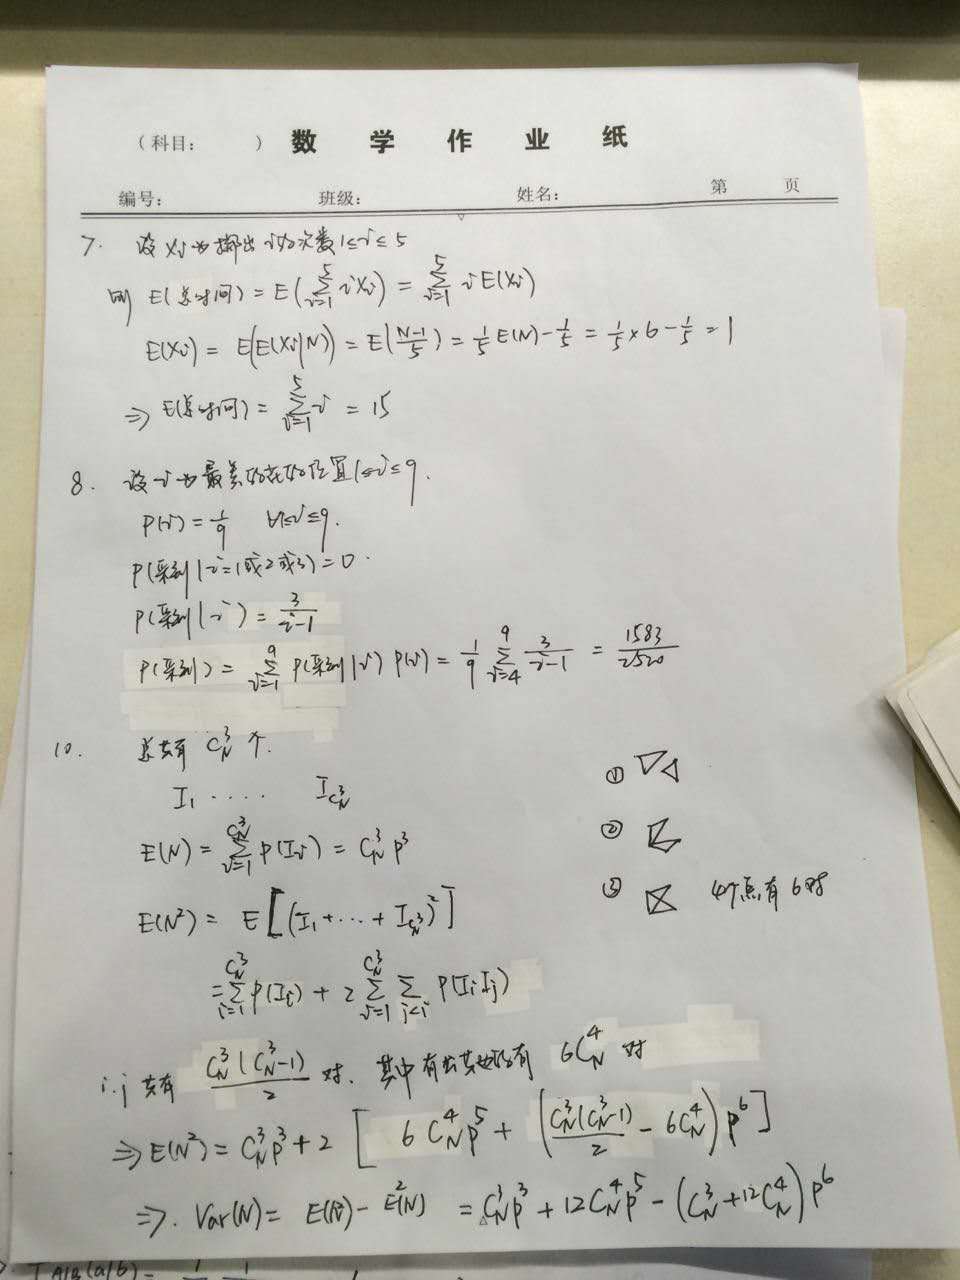 （科目：　　　） 数 学 作 业 纸
编号：　　　班级：　　　姓名：　　　第　　页
7. 设 Xi 为掷出 i 的次数 1≤i≤5
则 E(总时间) = E(∑_{i=1}^{5} iXi) = ∑_{i=1}^{5} i E(Xi)
E(Xi) = E(E(Xi|N)) = E(\frac{N-1}{5}) = \frac{1}{5} E(N) - \frac{1}{5} = \frac{1}{5}×6 - \frac{1}{5} = 1
⇒ E(总时间) = ∑_{i=1}^{5} i = 15
8. 设 i 为最美的在的位置 1≤i≤9.
P(i) = \frac{1}{9}　∀1≤i≤9.
P(采到|i=1或2或3) = 0.
P(采到|i) = \frac{3}{i-1}
P(采到) = ∑_{i=1}^{9} P(采到|i) P(i) = \frac{1}{9} ∑_{i=4}^{9} \frac{3}{i-1} = \frac{1583}{2520}
10. 总共有 C_N^3 个.
I_1 ····　I_{C_N^3}
①
E(N) = ∑_{i=1}^{C_N^3} P(Ii) = C_N^3 p^3
②
E(N^2) = E[(I_1+···+I_{C_N^3})^2]
③　4个点有6对
= ∑_{i=1}^{C_N^3} P(Ii) + 2∑_{i=1}^{C_N^3} ∑_{j<i} P(IiIj)
i.j 共有 \frac{C_N^3(C_N^3-1)}{2} 对. 其中有公共边的有 6C_N^4 对
⇒ E(N^2) = C_N^3 p^3 + 2[6C_N^4 p^5 + (\frac{C_N^3(C_N^3-1)}{2} - 6C_N^4) p^6]
⇒. Var(N) = E(N^2) - E^2(N) = C_N^3 p^3 + 12C_N^4 p^5 - (C_N^3 + 12C_N^4) p^6